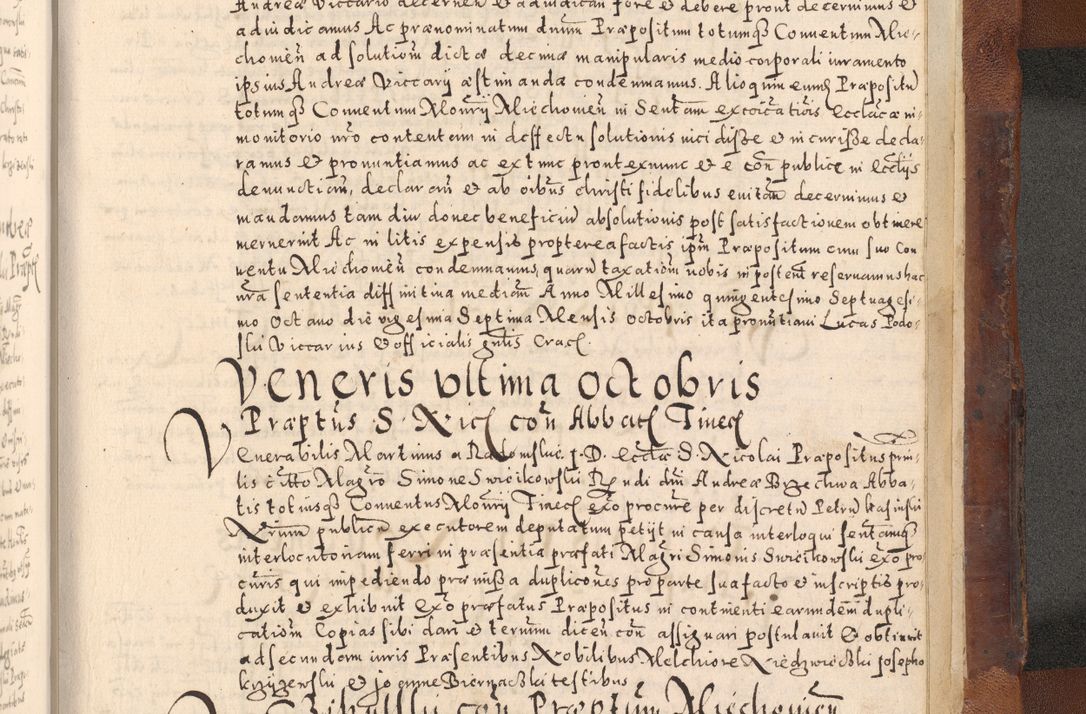 Andreæ Viccario decernen̄ et adiudican̄ fore et debere prout decernimus et
adiudicamus Ac prænominatum dnūm Præpositum totumqȝ Conuentum Mie-
chouien̄ ad solutioñ dictæ decimæ manipularis medio corporali iuramento
ipsius Andreæ Viccarij æstimanda condemnamus. Alioquin eumqȝ Præpositū
totumqȝ Conuentum Monrij Miechouien̄ in Sentam̄ excōicationis ecclicæ in
monitorio nr̄o contentam in deffectu solutionis incidisse et incurisse decla-
ramus et pronuntiamus ac ex tunc prout ex nunc et e cōn publice in ecclijs
denunctian̄, declaran̄ et ab oībus christifidelibus euitan̄ decernimus et
mandamus tam diu donec beneficiū absolutionis post satisfactionem obtinere
meruerint Ac in litis expensis propterea factis ip̄m Præpositum cum suo Con
uentu Miechouien̄ condemnamus, quarū taxationē nobis in posterū reseruamus hac
nr̄a sententia diffinitiua median̄ Anno Millesimo quingentesimo Septuagesi-
mo octauo die vigesima Septima Mensis octobris ita pronūtiaui Lucas Podo-
ski Viccarius et officialis gnlis Crac
Veneris vltima octobris
Præptūs S. Nic cōn Abbat Tinec
Venerabilis Martinus a Radomsko J. D. ecclæ S. Nicolai Præpositus prin-
lis cittō Magrō Simone Swiecikowski Rn̄di dni Andreæ Brzechwa Abba-
tis totiusqȝ Conuentus Monrij Tinec ex̄o procure per discretū Petrū Kasinski
Nr̄ium publicū executorem deputatum petijt in causa interloqui sentamqȝ
interlocutoriam ferri in præsentia præfati Magri Simonis Swiecikowski ex̄o pro
curis qui impediendo præmissa duplicōnes pro parte sua facto et in scriptis pro-
duxit et exhibuit Ex̄o præfatus Præpositus in continenti earundem dupli-
cationū Copias sibi dari et termin̄ dicen̄ cōn assignari postulauit et obtinuit
ad secundam iuris Præsentibus Nobilibus Melchiore Niedzwiedzki Josepho
Krzyzewski et Joanne Biernacki testibus
cōn Præptum Miechouien̄